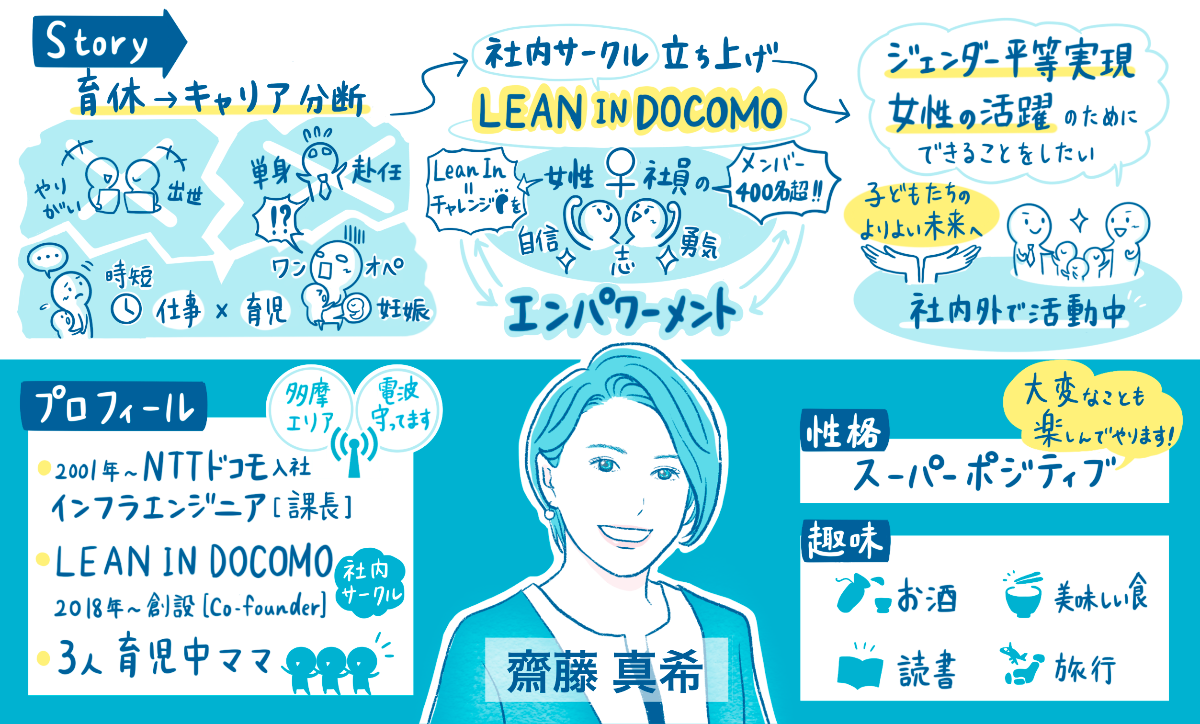 Story
育休→キャリア分断
やりがい
出世
単身
赴任
!?
ワン
オペ
...
時短
仕事 × 育児
妊娠
社内サークル 立ち上げ
LEAN IN DOCOMO
Lean In
=
チャレンジを
女性♀社員の
メンバー
400名超!!
自信
志
勇気
エンパワーメント
ジェンダー平等実現
女性の活躍のために
できることをしたい
子どもたちの
よりよい未来へ
社内外で活動中
プロフィール
多摩
エリア
電波
守ってます
2001年~NTTドコモ入社
インフラエンジニア[課長]
LEAN IN DOCOMO
社内
サークル
2018年~創設[Co-founder]
3人育児中ママ
齋藤 真希
性格
大変なことも
楽しんでやります!
スーパーポジティブ
趣味
お酒
美味しい食
読書
旅行